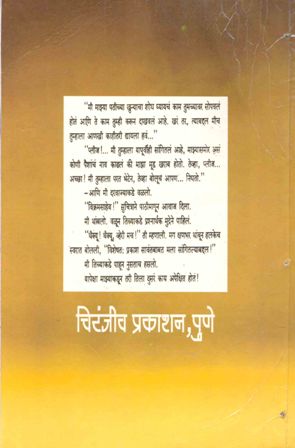 "मी माझ्या पतीच्या खुन्याचा शोध घ्यायचं काम तुमच्यावर सोपवलं
होतं आणि ते काम तुम्ही करून दाखवलं आहे. खरं तर, त्याबद्दल मीच
तुम्हाला आणखी काहीतरी द्यायला हवं..."
"प्लीज!... मी तुम्हाला यापूर्वीही सांगितलं आहे, माझ्यासमोर असं
कोणी पैशांचं नाव काढलं की माझा मूड खराब होतो. तेव्हा, प्लीज...
अच्छा! मी तुम्हाला परत भेटेन, तेव्हा बोलूच आपण... निघतो."
-आणि मी दरवाज्याकडे वळलो.
"विक्रमसाहेब!" सुचित्राने पाठीमागून आवाज दिला.
मी थांबलो. वळून तिच्याकडे प्रश्नार्थक मुद्रेने पाहिलं.
"थँक्यू! थँक्यू व्हेरी मच!" ती म्हणाली. मग क्षणभर थांबून हलकेच
स्वरात बोलली, "विशेषतः प्रकाश सावंतबाबत मला सांगितल्याबद्दल!"
मी तिच्याकडे पाहून नुसताच हसलो.
यापेक्षा माझ्याकडून तरी तिला दुसरं काय अपेक्षित होतं!
चिरंजीव प्रकाशन,पुणे